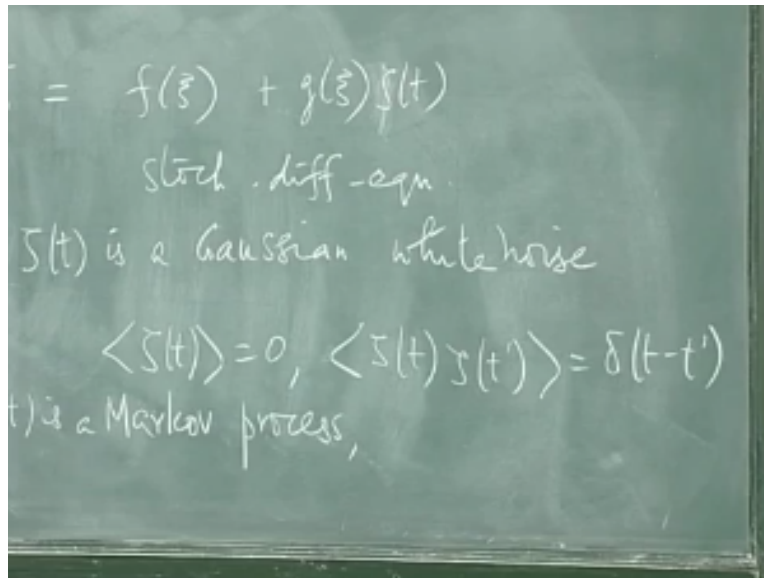 = f(ξ) + g(ξ)ζ(t)
stoch. diff-eqn.
ζ(t) is a Gaussian white noise
<ζ(t)>=0, <ζ(t)ζ(t')>= δ(t-t')
t) is a Markov process,